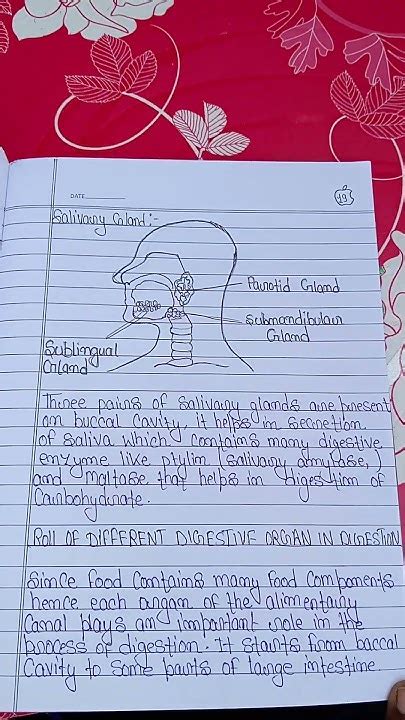 DATE
19
Salivary Gland:-
Parotid Gland
Submandibular
Gland
Sublingual
Gland
Three pairs of salivary glands are present
on buccal cavity, it helps in secretion
of saliva which contains many digestive
enzyme like ptylim (salivary amylase,)
and maltase that helps in digestion of
Carbohydrate.
Roll OF DIFFERENT DIGESTIVE ORGAN IN DIGESTION
Since food contains many food components
hence each organ of the alimentary
Canal plays an important role in the
process of digestion. It starts from baccal
Cavity to some parts of large intestine.